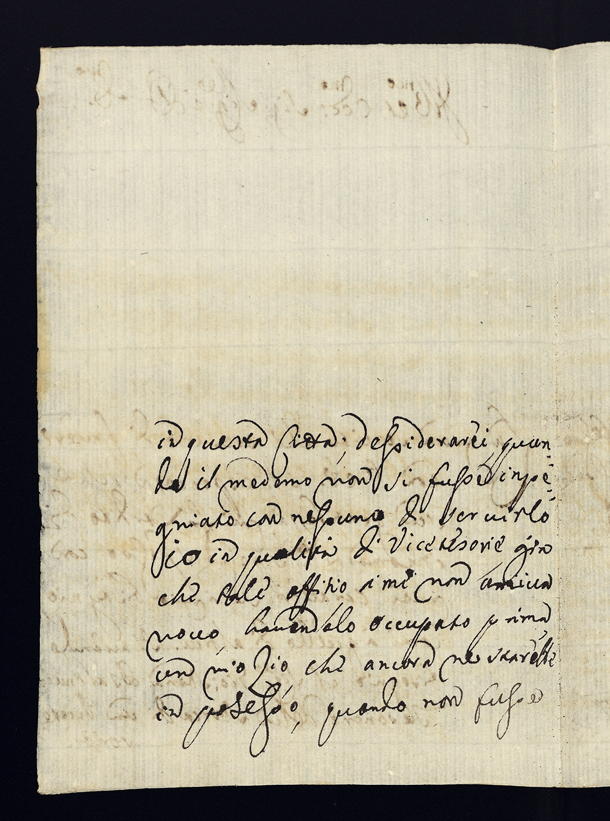 in questa Città; dessiderarei, quan-
do il medemo non si fusse inpe-
gniato con nessuno di servirlo
io in qualità di Vicetesorie gia
che tale offitio a me non arriva
novo havendolo occupato prima
un mio Zio che ancora ne starebbe
in possesso, quando non fusse